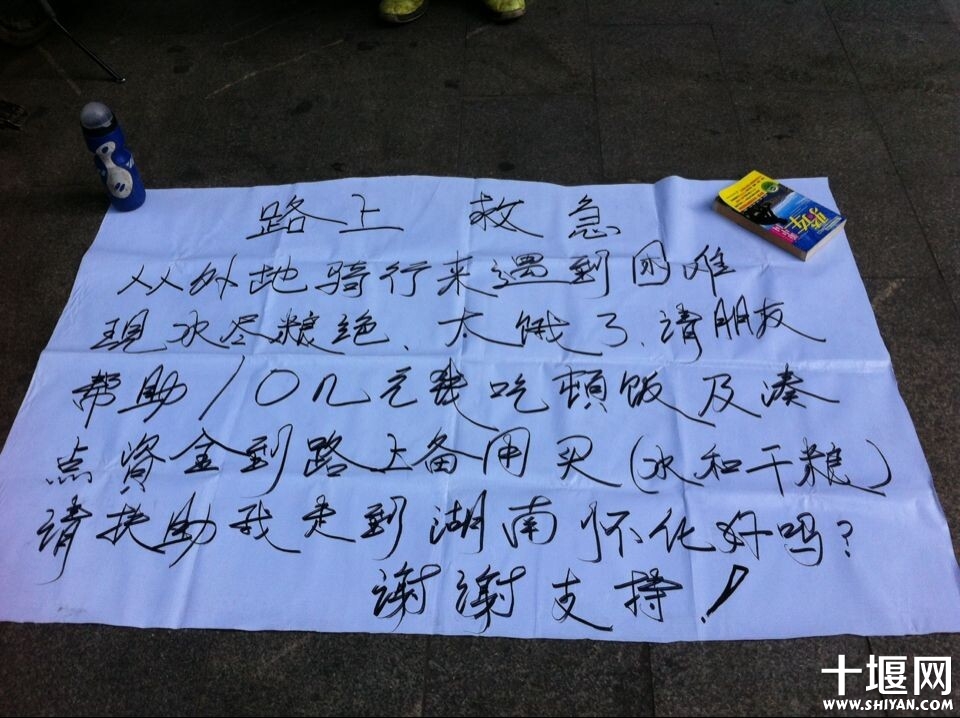 路上 救急
从外地骑行来遇到困难
現水尽粮绝、太饿了、请朋友
帮助10几元我吃頓饭及凑
点資金到路上备用买(水和干粮)
请扶助我走到湖南怀化好吗?
谢谢支持!
十堰网
WWW.SHIYAN.COM